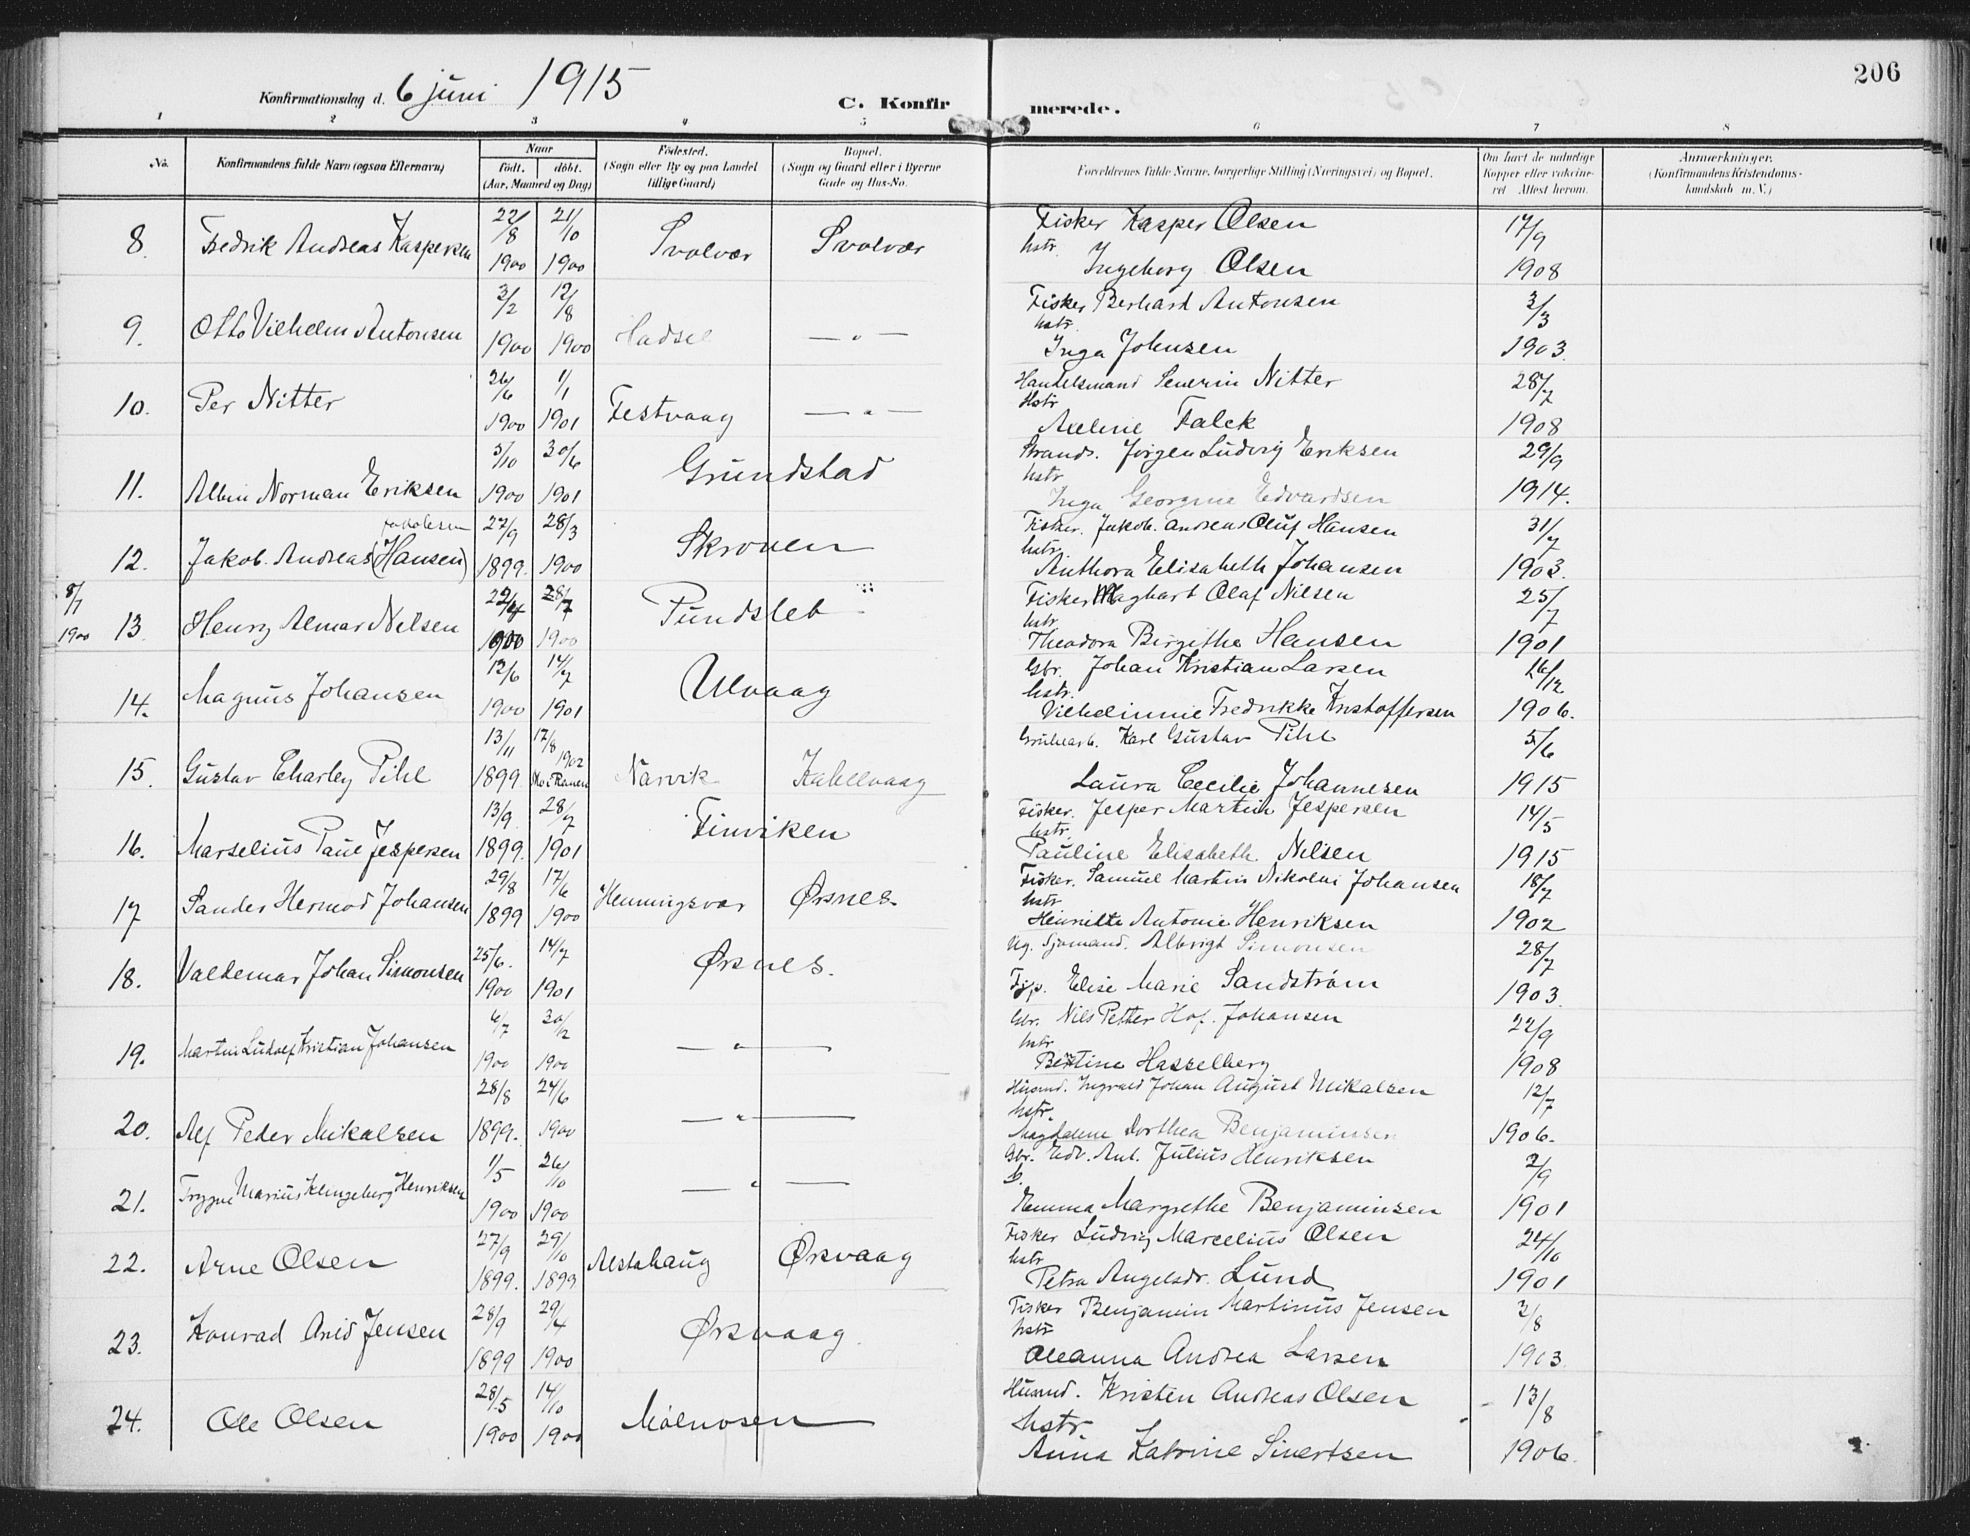 206
Konfirmationsdag d. 6 juni 1915
C. Konfirmerede.
1 2 3 4 5 6 7 8
No.
Konfirmandens fulde Navn (ogsaa Efternavn)
Naar
født. døbt.
(Aar, Maaned og Dag)
Fødested.
(Sogn eller By og paa Landet
tillige Gaard)
Bopæl.
(Sogn og Gaard eller i Byerne
Gade og Hus-No.
Forældrenes fulde Navne, borgerlige Stilling (Næringsvei) og Bopæl.
Om havt de naturlige
Kopper eller vaccine-
ret Attest herom.
Anmærkninger.
(Konfirmandens Kristendoms-
kundskab m. V.)
8. Fredrik Andreas Kaspersen 22/8 1900 21/10 1900 Svolvær Svolvær Fisker Kasper Olsen 17/9
hstr. Ingeborg Olsen 1908
9. Otto Vilhelm Antonsen 3/2 1900 12/8 1900 Hadsel — " — Fisker Berhard Antonsen 3/3
hstr. Inga Johnsen 1903.
10. Per Nitter 26/6 1900 1/1 1901 Festvaag — " — Handelsmand Severin Nitter 28/7
Hstr Axeline Falck 1908
11. Albin Norman Eriksen 5/10 1900 30/6 1901 Grundstad Strands. Jørgen Ludvig Eriksen 29/9
hstr Inga Georgine Edvardsen 1914.
12. Jakob Andreas (Hansen) Jakobsen 27/9 1899. 28/3 1900 Skroven Fisker. Jakob Andreas Oluf Hansen 31/7
hstr. Anthora Elisabeth Johansen 1903.
8/1 1900 13. Henry Almar Nilsen 29/4 1900 28/7 1900 Pundsleb Fisker Maghart Olaf Nilsen 25/7
hstr. Theodora Birgithe Hansen 1901
14. Magnus Johansen 12/6 1900 14/7 1901 Ulvaag Gbr. Johan Kristian Larsen 16/12
hstr. Vilhelmine Fredrikke Kristoffersen 1906.
15. Gustav Charley Pihl 13/11 1899. 17/8 1902 Mo i Ranen Narvik Kabelvaag Grubearb. Karl Gustav Pihl 5/6
Laura Cecilie Johannesen 1915
16. Marselius Paul Jespersen 13/9 1899. 28/7 1901 Finviken Fisker. Jesper Martin Jespersen 14/5
hstr. Pauline Elisabeth Nilsen 1915
17 Sander Hermod Johansen 29/8 1899 17/6 1900 Henningsvær Ørsnes. Fisker. Samuel Martin Nikolai Johansen 18/7
hstr Henriette Antonie Henriksen 1902
18. Valdemar Johan Simonsen 25/6. 1900 14/7 1901 Ørsnes. Ug. Sjømand. Albrigt Simonsen 28/7
Fgp. Elise Marie Sandstrøm 1903.
19. Martin Ludolf Kristian Johansen 6/7 1900 30/12 1900 — " — Gbr. Nils Petter Hof. Johansen 22/9
hstr Bertine Hasselberg 1908
20. Alf Peder Mikalsen 28/8 1899. 24/6 1900 — " — Husmd. Ingvald Johan August Mikalsen 12/7
hstr. Magdalene Dorthea Benjaminsen 1906.
21. Trygve Marius Klingeberg Henriksen 1/5 1900 26/10 1900 — " — Gbr. Edv. Ant. Julius Henriksen 2/9
Emma Margrethe Benjaminsen 1901
22. Arne Olsen 27/9 1899. 29/10 1899 Alstahaug Ørsvaag Fisker Ludvig Marcelius Olsen 24/10
hstr Petra Angelsdr. Lund 1901
23. Konrad Arid Jensen 28/9 1899 29/4 1900 Ørsvaag. Fisker Benjamin Martinus Jensen 3/8
hstr Oleanna Andrea Larsen 1903.
24. Ole Olsen 28/5 1900 14/10 1900 Mølnosen Husmd. Kristen Andreas Olsen 13/8
hstr Anna Katrine Sivertsen 1906.